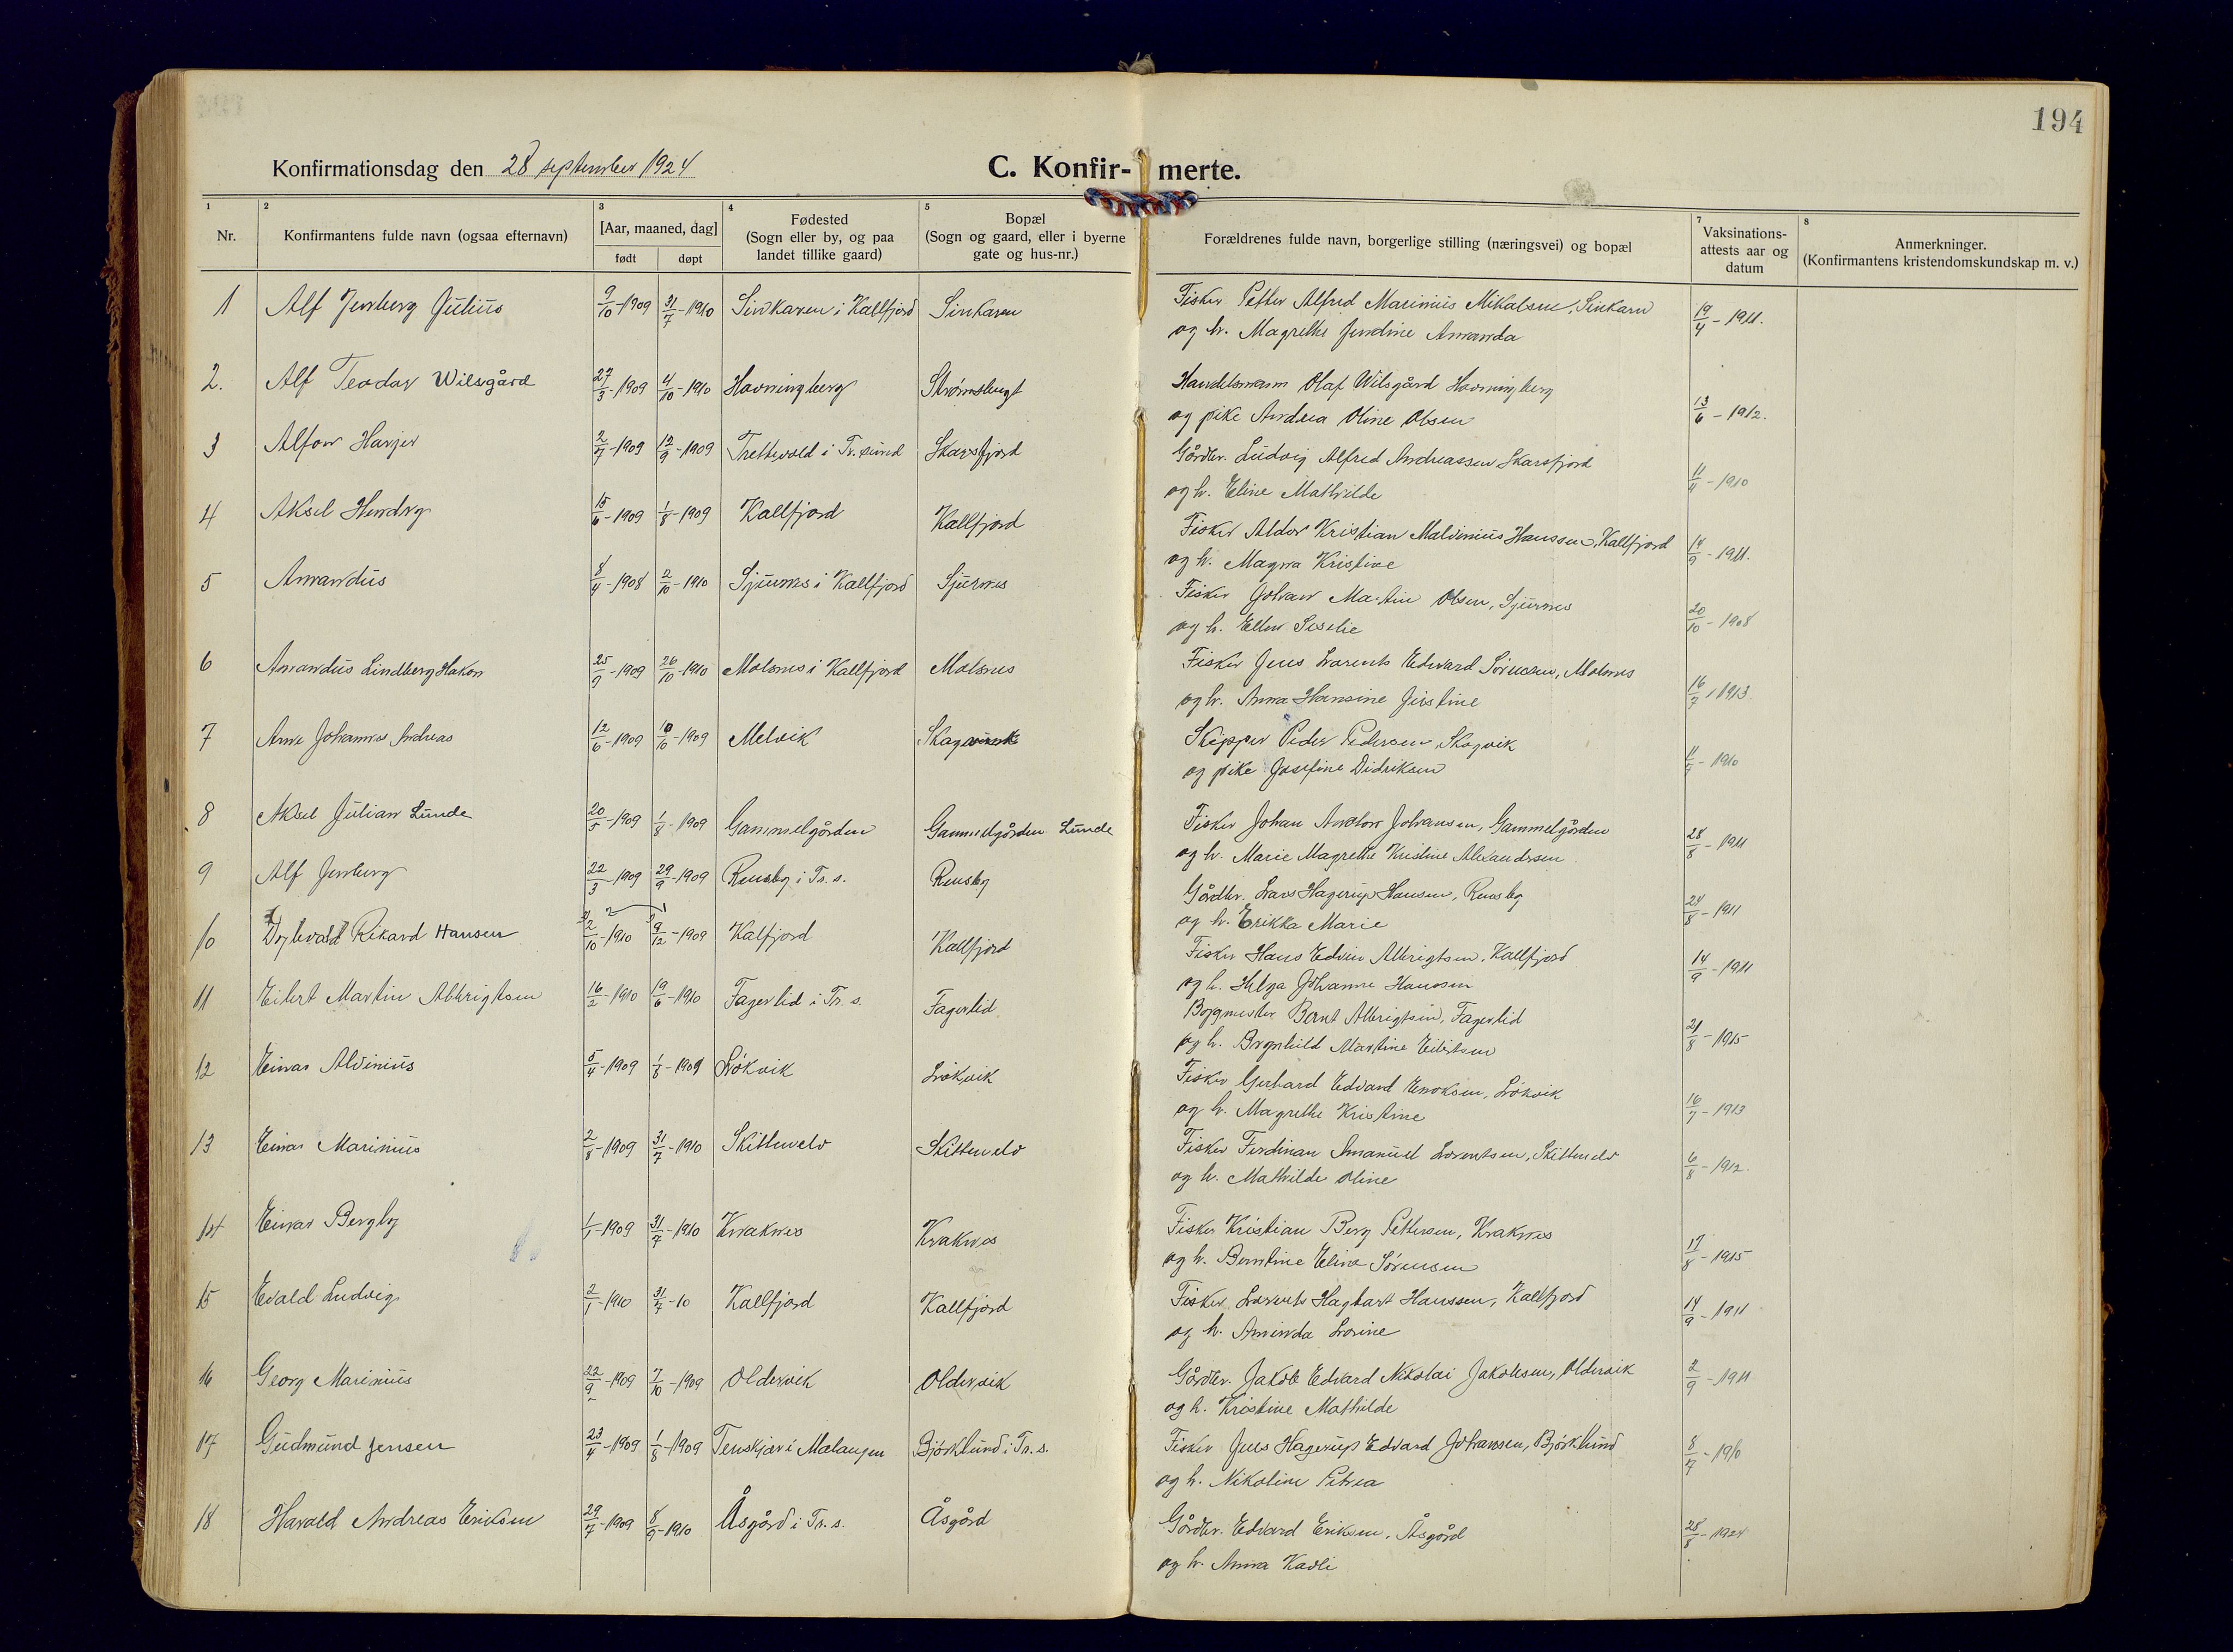 194
Konfirmationsdag den 28 september 1924
C. Konfir- merte.
1 2 3 4 5 7 8
Nr.
Konfirmantens fulde navn (ogsaa efternavn)
[Aar, maaned, dag]
født døpt
Fødested
(Sogn eller by, og paa
landet tillike gaard)
Bopæl
(Sogn og gaard, eller i byerne
gate og hus-nr.)
Forældrenes fulde navn, borgerlige stilling (næringsvei) og bopæl
Vaksinations-
attests aar og
datum
Anmerkninger.
(Konfirmantens kristendomskundskap m. v.)
1 Alf Jenberg Julius 9/10-1909 31/7-1910 Sinkaren i Kallfjord Sinkaren Fisker Petter Alfred Marinius Mikalsen, Sinkaren 19/4-1911.
og h. Magrethe Jendine Amanda
2. Alf Teodor Wilsgård 27/3-1909 4/10-1910 Havningberg Strømsbugt Handelsmann Olaf Wilsgård Havningberg
og pike Andrea Oline Olsen 13/6-1912.
3 Alfon Harjer 2/7-1909 12/9-1909 i Tr.sund Skarsfjord Gårdbr. Ludvig Alfred Andreassen Skarsfjord
og h. Eline Mathilde 11/4-1910
4 Aksel Hendry 15/6-1909 1/8-1909 Kallfjord Kallfjord Fisker Aldor Kristian Malvinius Hanssen, Kallfjord
og h. Magna Kristine 14/9-1911.
5 Amandus 8/4-1908 2/10-1910 Sjurnes i Kallfjord Sjurnes Fisker Johan Martin Olsen, Sjurnes
og h. Ellen Seselie 20/10-1908
6 Amandus Lindberg Hakon 25/9-1909 26/10-1910 Molsnes i Kallfjord Molsnes Fisker Jens Lorents Edvard Sörensen, Molsnes
og h. Anna Hansine Justine 16/7 1913
7 Arne Johannes Andreas 12/6-1909 10/10-1909 Melvik Skipper Peder Pedersen, Skogvik
og pike Josefine Didriksen 1910
8 Aksel Julian Lunde 20/5-1909 1/8-1909 Gammelgården Gammelgården Lunde Fisker Johan Johansen, Gammelgården
og h. Marie Magrethe Kristine Alexandersen 28/8-1911
9 Alf Jenberg 22/3-1909 29/9-1909 Rensby i Tr. s. Rensby Gårdbr. Lars Hagerup Hansen, Rensby
og h. Erikka Marie 24/8-1911
10 Rikard Hansen 2/10-1910 9/12-1909 Kalfjord Kallfjord Fisker Hans Edvin Albrigtsen, Kallfjord
og h. Helga Johanne Hanssen 14/9-1911
11 Eilert Martin Albrigtsen 16/2-1910 19/6-1910 Fagerlid i Tr. s. Fagerlid Byggmester Bernt Albrigtsen, Fagerlid
og h. Brynhild Martine Eilertsen 21/8-1915
12 Einar Alvinius 5/4-1909 1/8-1909 Lökvik Lökvik Fisker Gerhard Edvard Enoksen, Lökvik
og h. Magrethe Kristine 16/7-1913
13 Einar Marinius 2/8-1909 31/7-1910 Skittenelv Skittenelv Fisker Ferdinan Emanuel Lorentsen, Skittenelv
og h. Mathilde Oline 6/8-1912.
14 Einar Bergby 1/1-1909 31/7-1910 Kraknes Kraknes Fisker Kristian Berg Pettersen, Kraknes
og h. Berntine Elina Sörensen 17/8-1915
15 Evald Ludvig 2/1-1910 31/7-10 Kallfjord Kallfjord Fisker Lorents Hagbart Hanssen, Kallfjord
og h. Aminda Lorine 14/9-1911
16 Georg Marinius 22/9-1909 7/10-1909 Oldervik Oldervik Gårdbr. Jakob Edvard Nikolai Jakobsen, Oldervik
og h. Kristine Mathilde 2/9-1911
17 Gudmund Jensen 23/4-1909 1/8-1909 Tenskjær i Malangen Björklund i Tr. s. Fisker Jens Hagerup Edvard Johansen, Björklund
og h. Nikoline Petrea 8/7-1910
18 Harald Andreas Eriksen 29/7-1909 8/9-1910 Åsgård i Tr. s. Åsgård Gårdbr. Edvard Eriksen, Åsgård
og h. Anna Kadli 28/8-1924